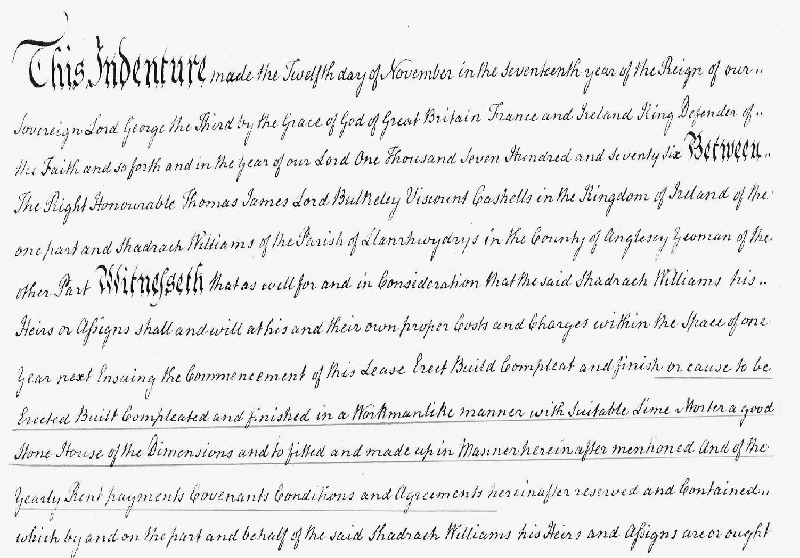 This Indenture made the Twelfth day of November in the Seventeenth year of the Reign of our..
Sovereign Lord George the Third by the Grace of God of Great Britain France and Ireland King Defender of..
the Faith and so forth and in the year of our Lord One Thousand Seven Hundred and Seventy Six Between..
The Right Honourable Thomas James Lord Bulkeley Viscount Cashells in the Kingdom of Ireland of the
one part and Shadrach Williams of the Parish of Llanrhwydrys in the County of Anglesey Yeoman of the
other Part Witnesseth that as well for and in Consideration that the said Shadrach Williams his..
Heirs or Assigns shall and will at his and their own proper Costs and Charges within the Space of one
Year next Ensuing the Commencement of this Lease Erect Build Compleat and finish or cause to be
Erected Built Compleated and finished in a Workmanlike manner with Suitable Lime Morter a good
Stone House of the Dimensions and to fitted and made up in Manner herein after mentioned And of the
Yearly Rent payments Covenants Conditions and Agreements hereinafter reserved and Contained..
which by and on the part and behalf of the said Shadrach Williams his Heirs and Assigns are or ought